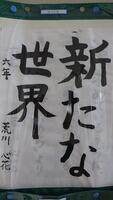 新たな
世界
六年 荒川 心花